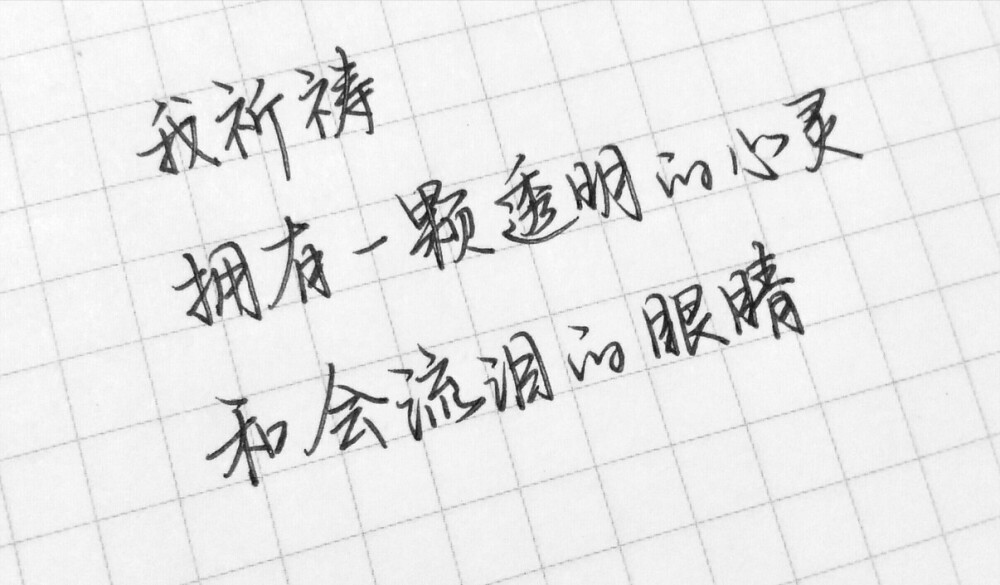 我祈祷
拥有一颗透明的心灵
和会流泪的眼睛